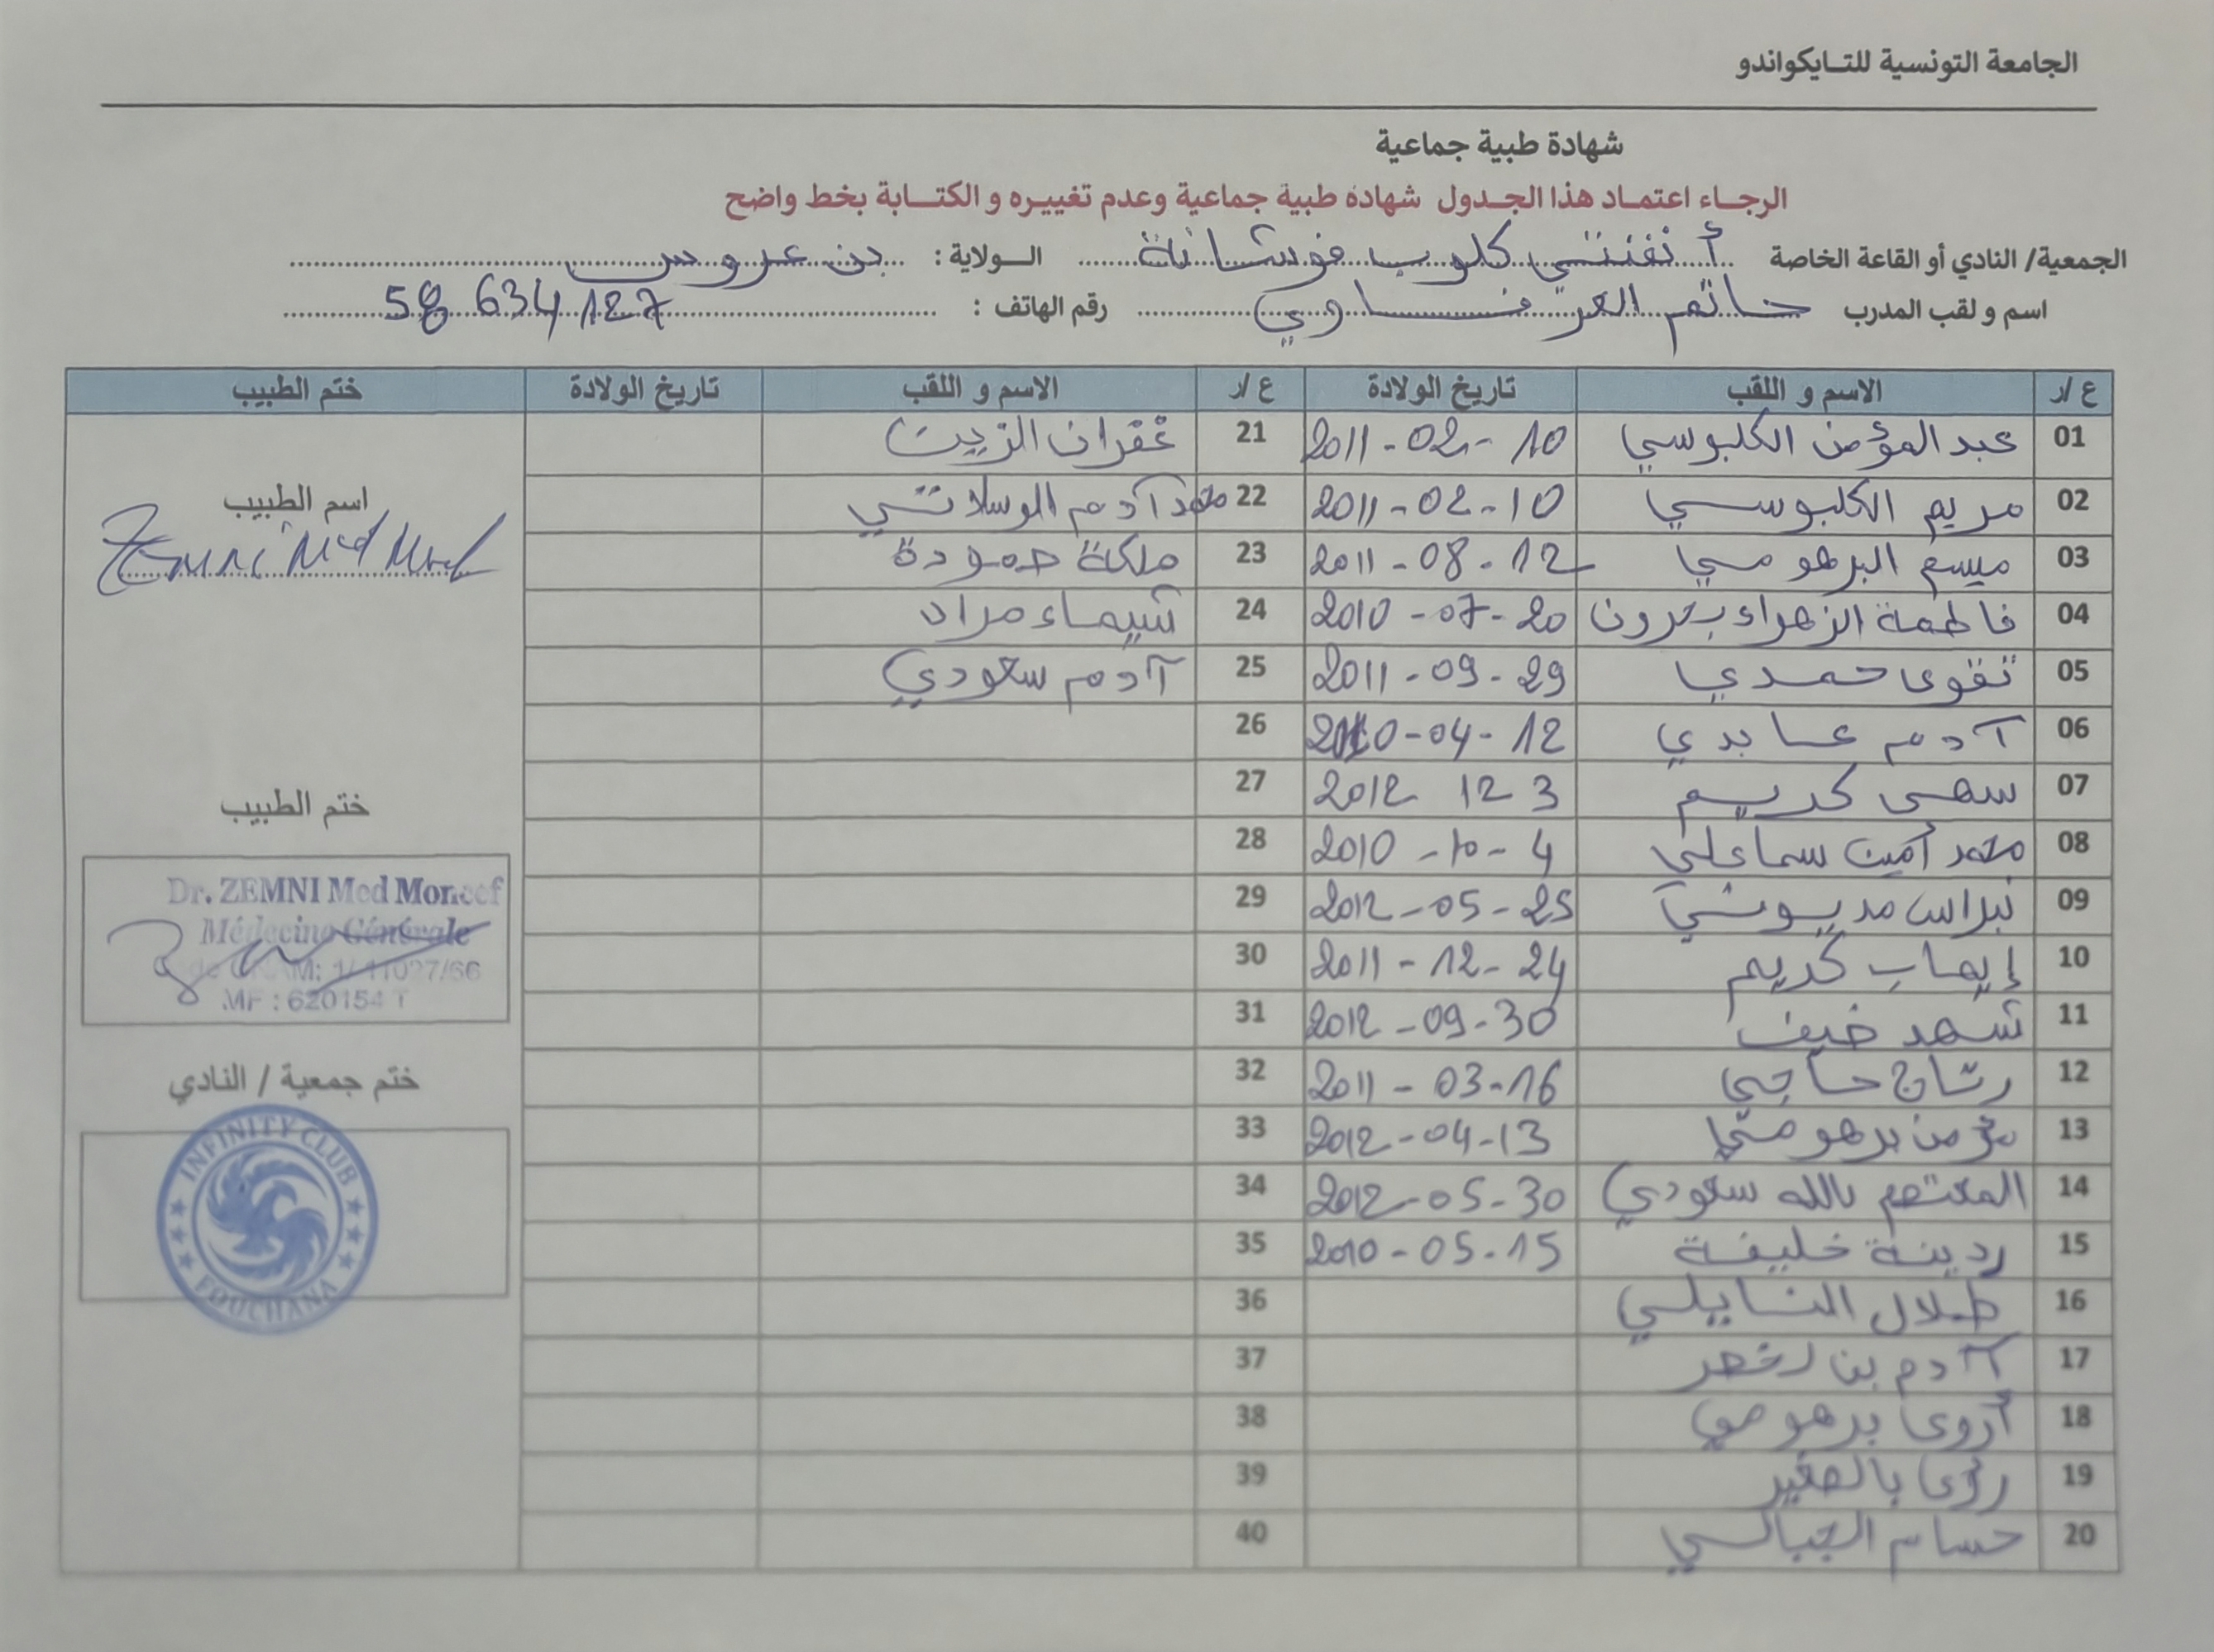 الجامعة التونسية للتايكواندو
شهادة طبية جماعية
الرجاء اعتماد هذا الجدول شهادة طبية جماعية وعدم تغييره و الكتابة بخط واضح
الجمعية/ النادي أو القاعة الخاصة أنفنتي كلوب فوشانة الولاية : بن عروس
اسم و لقب المدرب حاتم العرفاوي رقم الهاتف : 58 634 127
ع/ر الاسم و اللقب تاريخ الولادة ع/ر الاسم و اللقب تاريخ الولادة ختم الطبيب
01 عبد المؤمن الكلبوسي 2011-02-10 21 غفران الزين
02 مريم الكلبوسي 2011-02-10 22 محمد آدم الوسلاتي
03 ميسم البرهومي 2011-08-12 23 ملكة حمودة
04 فاطمة الزهراء 2010-07-20 24 شيماء مراد
05 تقوى حمدي 2011-09-29 25 آدم سعودي
06 آدم عابدي 2010-04-12 26
07 سهى كريم 2012 12 3 27
08 محمد أمين سماعلي 2010-10-4 28
09 نبراس مديوني 2012-05-25 29
10 إيهاب كريم 2011-12-24 30
11 شهد ضيف 2012-09-30 31
12 حاجي 2011-03-16 32
13 مؤمن برهومي 2012-04-13 33
14 المعتصم بالله سعودي 2012-05-30 34
15 ردينة خليفة 2010-05-15 35
16 طلال النايلي 36
17 آدم بن لخضر 37
18 أروى برهومي 38
19 رؤى بالصغير 39
20 حسام الجبالي 40
اسم الطبيب
Zemni Med
ختم الطبيب
Dr. ZEMNI Med Moncef
Médecine Générale
MF : 620154 T
ختم جمعية / النادي
INFINITY CLUB
FOUCHANA